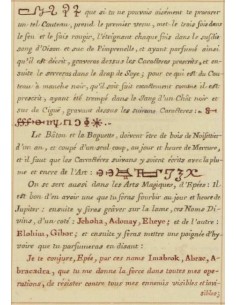 que si tu ne pouvois aisément te procurer
un tel Couteau, prend le premier venu, met-le trois fois dans
le feu et le fais rougir, l'éteignant chaque fois dans du susdit
sang d'Oison et suc de Pimprenelle, et ayant parfumé ainsi
qu'il est dit cydevant, graves dessus les Caractères prescrits, et en-
suite le serreras dans le drap de Soye; pour ce qui est du Cou-
teau à manche noir, qu'il soit fait exactement comme il est
prescrit, ayant été trempé dans le Sang d'un Chat noir et
suc de Ciguë, graves dessus les suivans Caractères:
Le Bâton et la Baguette, doivent être de bois de Noisettier
d'un an, et coupé d'un seul coup, au jour et heure de Mercure,
et il faut que les Caractères suivans y soient écrits avec la plu-
me et encre de l'Art:
On se sert aussi dans les Arts Magiques, d'Epées: Il
est bon d'en avoir une que tu feras fourbir au jour et heure de
Jupiter: ensuite y feras graver sur la lame, ces Noms Di-
vins, d'un côté: Jehoha, Adonay, Eheye; et de l'autre:
Elohim, Gibor; et ensuite y feras mettre une poignée d'y-
voire que tu parfumeras en disant:
Je te conjure, Epée, par ces noms Imabrok, Abrac, A-
bracadra, que tu me donne la force dans toutes mes ope-
rations, de résister contre tous mes ennemis visibles et invi-
sibles;